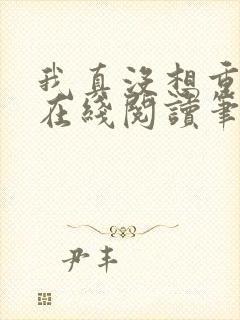 我真没想重
在线阅读笔
尹丰